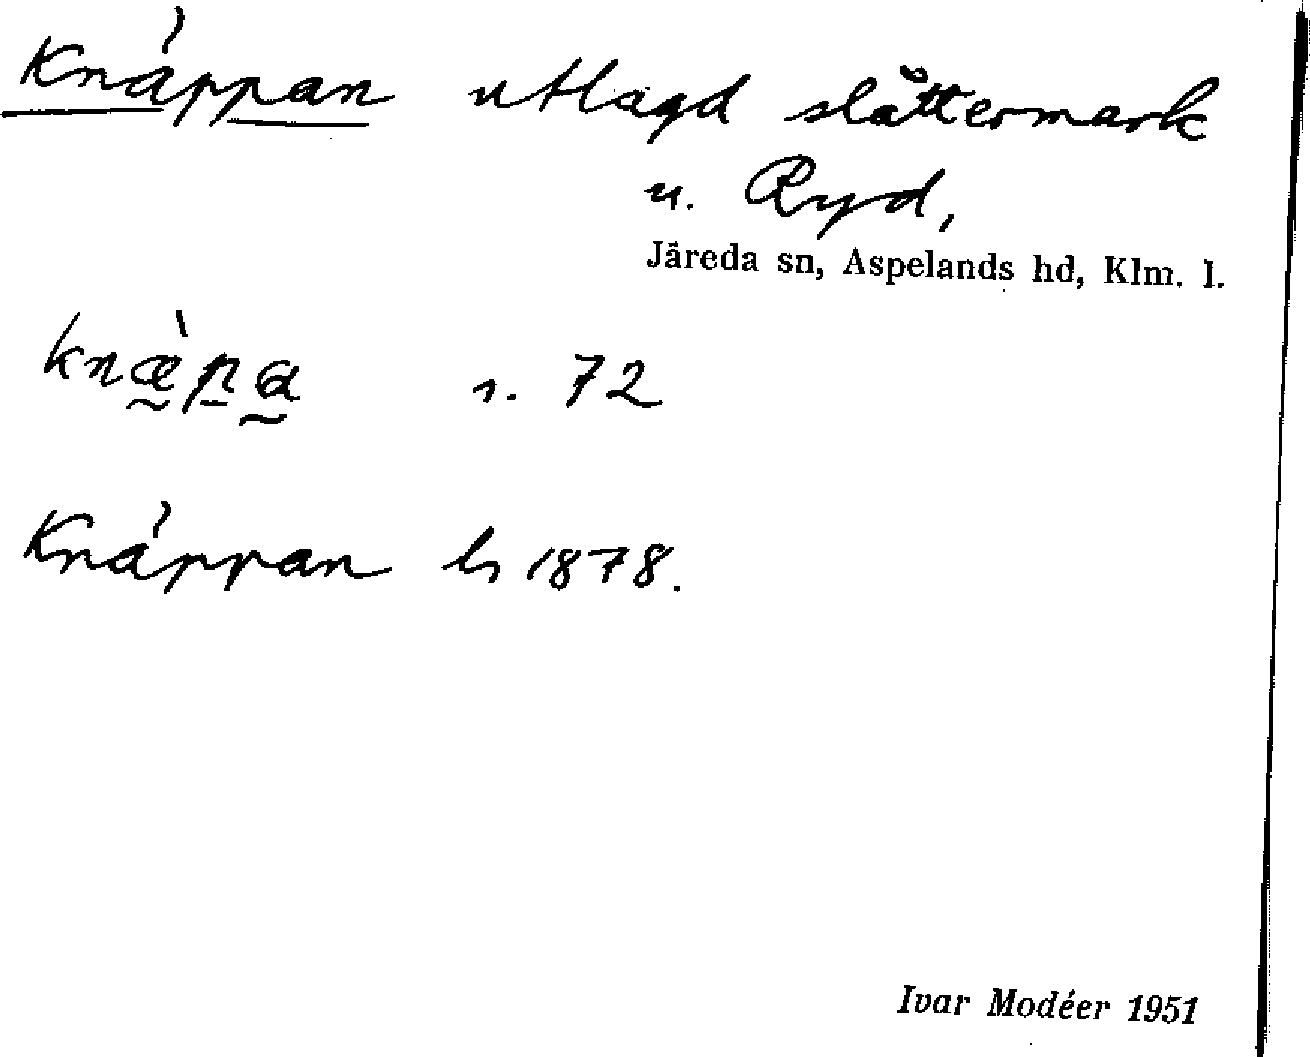 Knäppan utlagd slåttermark
u. Ryd,
Järeda sn, Aspelands hd, Klm. l.
knæ̀pa s. 72
Knäppan ls 1878.
Ivar Modéer 1951